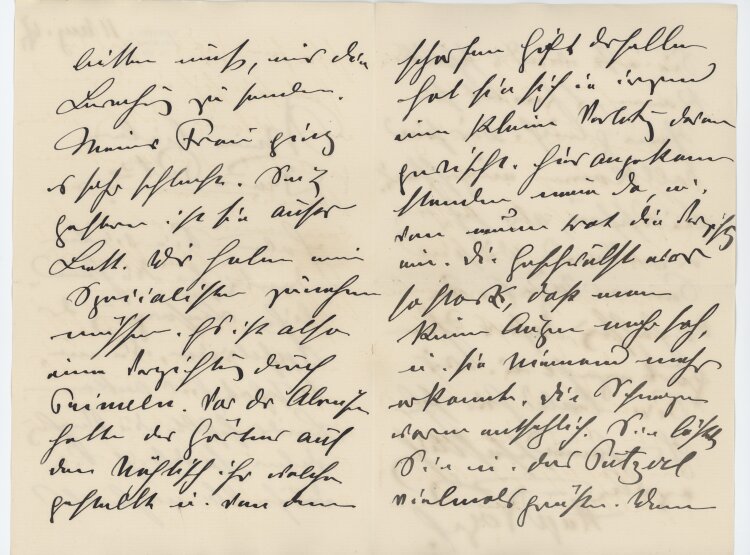 bitten muß, mir die
zu senden.
Meiner Frau ging
es sehr schlecht. Seit
gestern ist sie außer
Bett. Wir haben einen
Specialisten zunehmen
müssen. Es ist also
eine Vergiftung durch
Primeln. Vor der Abreise
hatte der Gärtner auf
den Nähtisch ihr welche
gestellt u. von dem
scharfen Gift derselben
hat sie sich in irgend
eine kleine Verletzg daran
gewischt. Hier angekommen
standen neue da, u.
von neuem trat die Vergiftg
ein. Die Geschwulst war
so stark, daß man
keine Augen mehr sah,
u. sie Niemand mehr
erkannte. Die Schmerzen
waren entsetzlich. Sie läßt
Sie u. das Putzerl
vielmals grüßen. Wenn